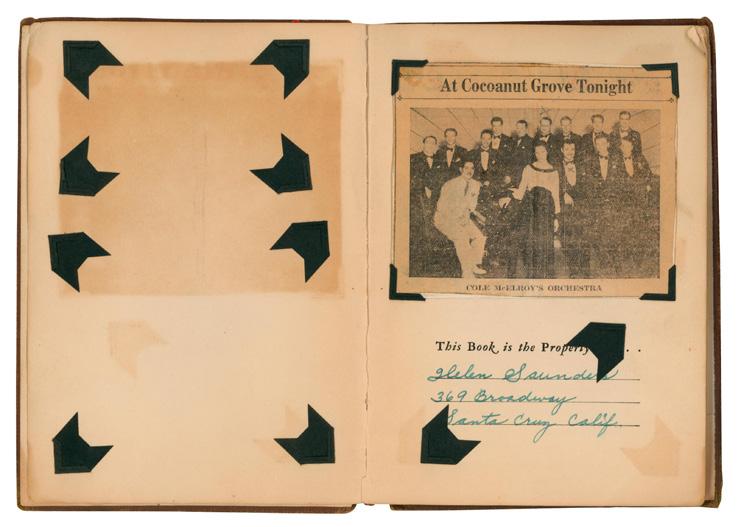 At Cocoanut Grove Tonight
COLE McELROY'S ORCHESTRA
This Book is the Property . .
Helen Saunders
369 Broadway
Santa Cruz Calif.